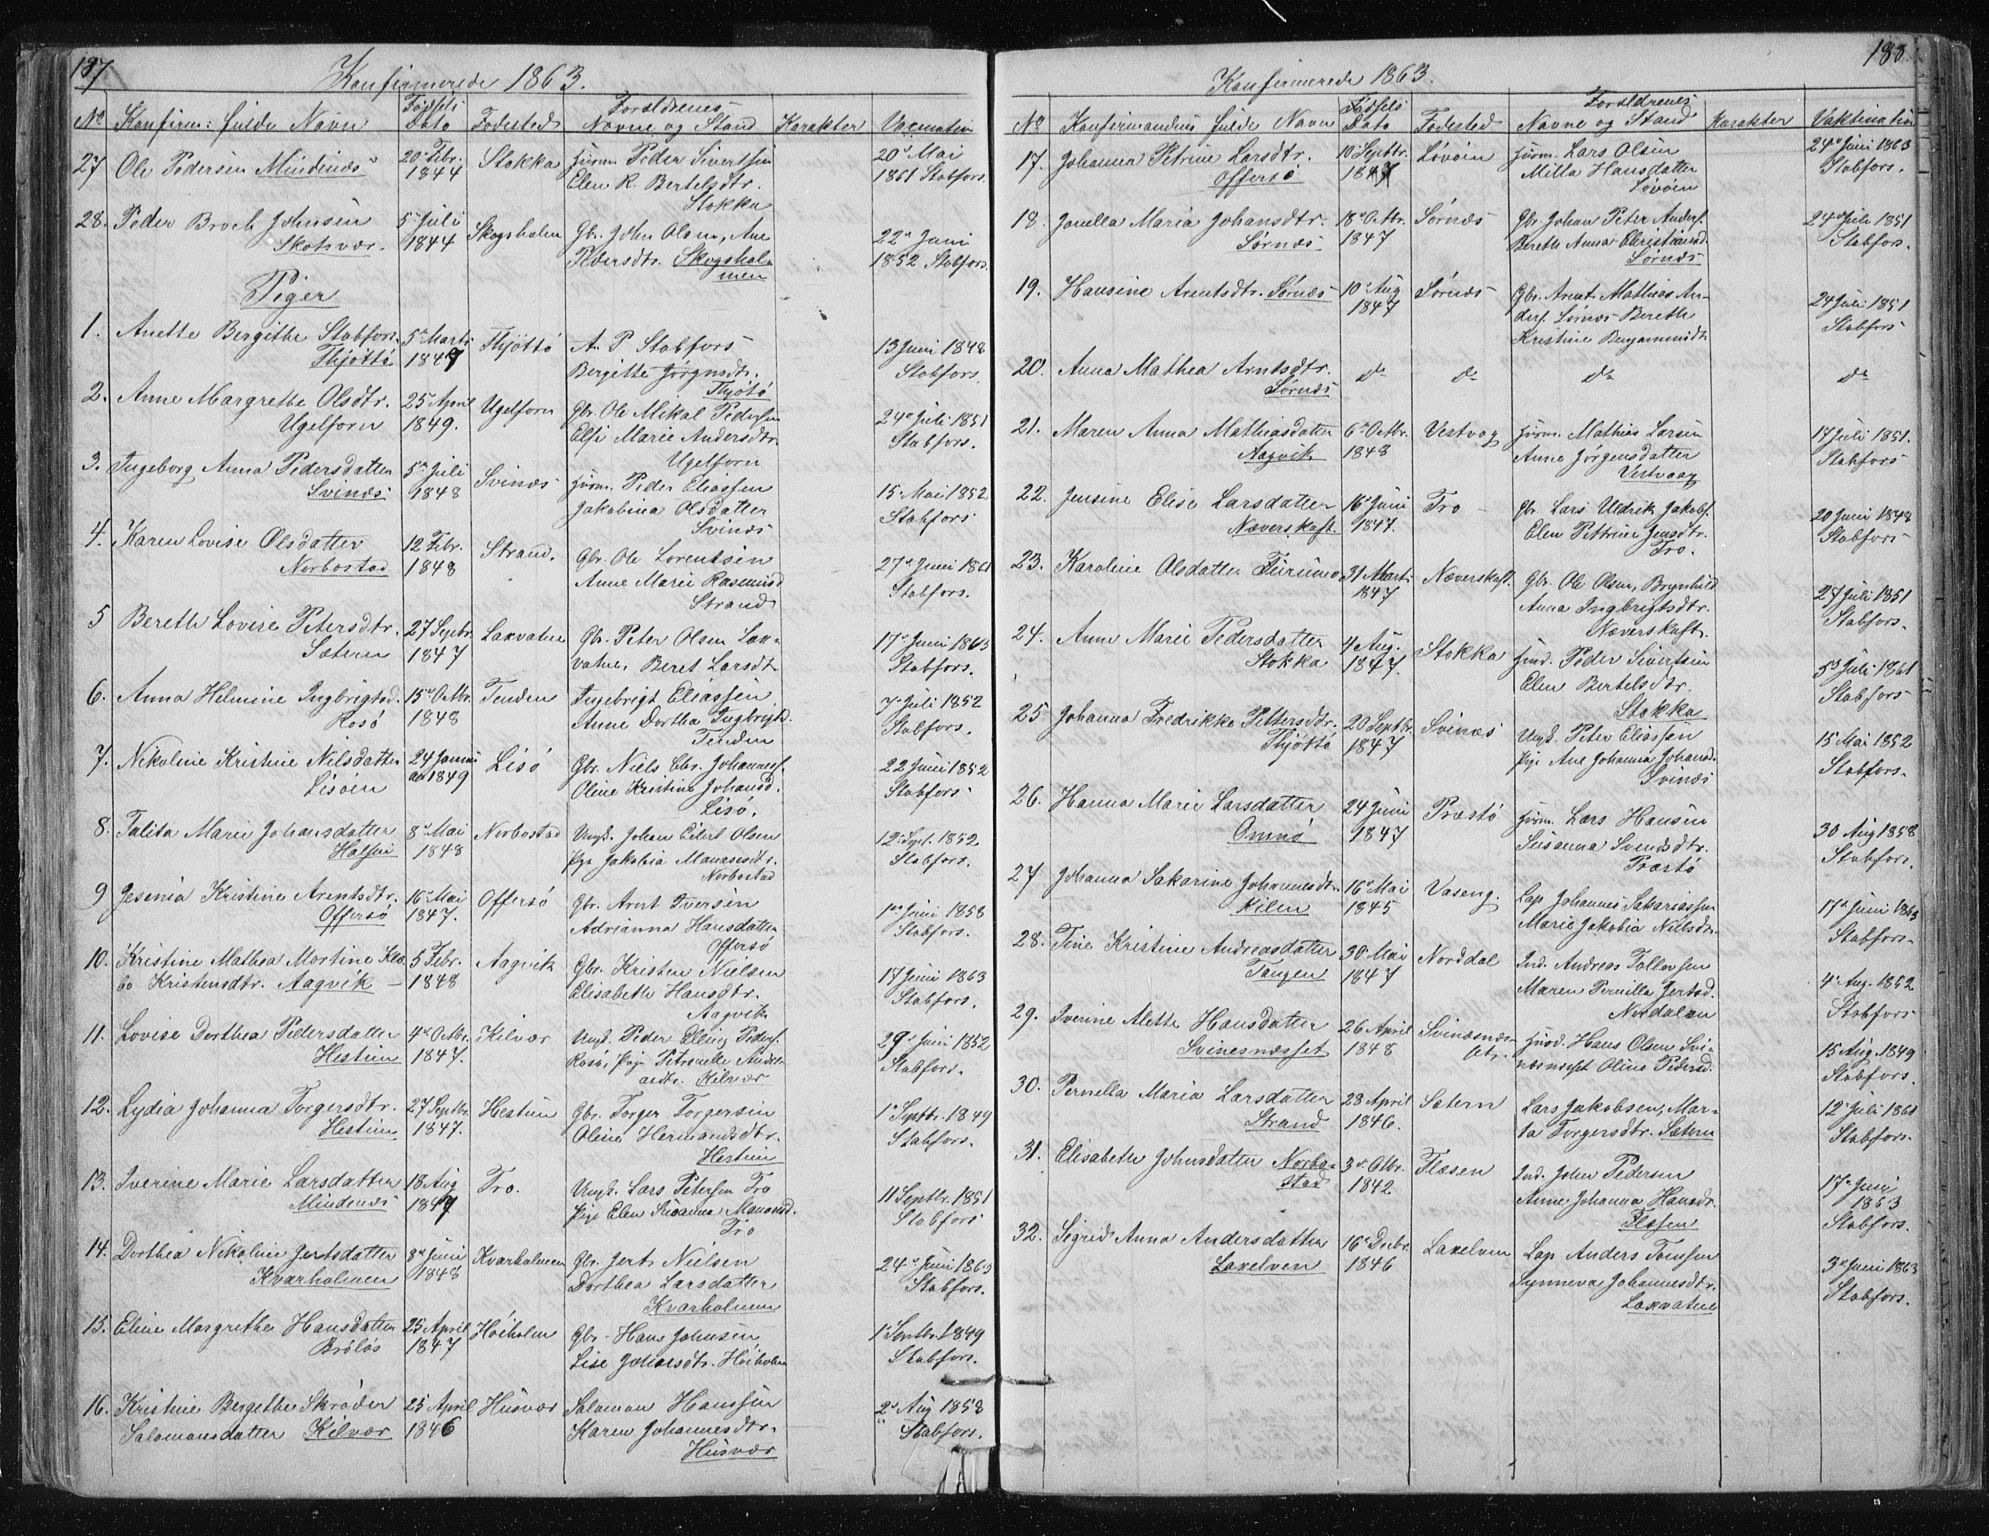 187
Konfirmerede 1863.
No Konfirm: fulde Navn Fødsels Dato Fødested Forældrenes Navne og Stand Karakter Vaccination
27 Ole Pedersen Mindenæs 20 Febr. 1844 Stokka Huusm. Peder Sivertsen Elen R. Bertelsdtr. Stokka 20 Mai 1861 Stabfors.
28. Peder Broch Johnsen Skotsvær. 5 Juli 1844 Skogsholm Gbr. John Olsen, Ane Pedersdtr. Skogsholmen 22 Juni 1852 Stabfors.
Piger
1. Anette Bergithe Stabfors. Thjøttø 5 Marts 1849 Thjøttø A. P Stabfors Bergitte Jørgensdtr. Thjøtø 13 Juni 1848 Stabfors.
2. Anne Margrethe Olsdtr. Ugelforn 25 April 1849. Ugelforn Gbr. Ole Mikal Pedersen Else Marie Andersdtr. Ugelforn 24 Juli 1851 Stabfors.
3. Ingeborg Anna Pedersdatter Svinæs 5 Juli 1848 Svinæs Huusm. Peder Eliassen Jakobina Olsdatter Svinæs 15 Mai 1852 Stabfors
4. Karen Lovise Olsdatter Norbostad 12 Febr. 1848 Strand. Gbr. Ole Lorentsen Anne Marie Rasmusd Strand 27 Juni 1861 Stabfors.
5 Berethe Lovise Petersdtr. Sæteren 27 Septbr. 1847 Laxvatne Gbr. Peter Olsen Laxvatne, Beret Larsdtr 17 Juni 1863 Stabfors.
6. Anna Helmine Ingbrigtsd. Rosø 15 Octbr. 1848 Tenden Ingebrigt Eliassen Anne Dorthea Ingbrigtsd. Tenden 7 Juli 1852 Stabfors.
7. Nikoline Kristine Nilsdatter Lisøen 24 Januar 1849 Lisø Gbr. Niels Chr. Johannesf. Oline Kristine Johansd. Lisø. 22 Juni 1852 Stabfors
8. Talita Marie Johansdatter Halsen 8 Mai 1848 Norbostad Ungk. Johan Eilert Olsen Pge Jakobia Manasesdtr. Norbostad 12 Sept. 1852. Stabfors.
9 Jesenia Kristine Arentsdtr. Offersø 16 Mai 1847. Offersø Gbr. Arnt Iversen Adrianna Hansdatter Offersø 1 Juni 1858 Stabfors.
10. Kristine Mathea Martine Klæbo Kristensdtr. Aagvik 5 Febr. 1848 Aagvik Gbr. Kristen Nielsen Elisabeth Hansdtr. Aagvik 17 Juni 1863 Stabfors.
11. Lovise Dorthea Pedersdatter Hestun 4 Octbr. 1847. Kilvær Ungk. Peder Elling Pedersf. Rosø, Pige Petronelle Andreasdtr. Kilvær 29 Juni 1852 Stabfors.
12. Lydia Johanna Torgersdtr. Hestun 27 Septbr. 1847. Hestun Gbr. Torger Torgersen Oline Hermandsdtr. Hestun 1 Septbr. 1849 Stabfors.
13. Iverine Marie Larsdatter Mindenæs 18 Aug 1847 Tro. Ungk. Lars Petersen Tro Pige Elen Susanna Manasd. Tro 11 Septbr. 1851 Stabfors
14. Dorthea Nikoline Jertsdatter Kvarholmen 8 Juni 1848 Kvarholmen Gbr. Jert Nielsen Dorthea Larsdatter Kvarholmen 24 Juni 1863 Stabfors.
15. Eline Margrethe Hansdatter Brøløs 25 April 1847 Høiholm Gbr. Hans Johnsen, Lise Johansdtr. Høiholm 1 Septbr. 1849 Stabfors.
16. Kristine Bergethe Skrøder Salomonsdatter Kilvær 25 April 1846 Husvær Salomon Hanssen Karen Johannesdtr. Husvær 2 Aug 1858 Stabfors.
188
Konfirmerede 1863.
No Konfirmandens fulde Navn Fødsels Dato Fødested Forældrenes Navne og Stand Karakter Vaktination
17. Johanna Petrine Larsdtr. Offersø 10 Septbr. 1847 Løvøen Huusm. Lars Olsen Milla Hansdatter Løvøen 24 Juni 1863 Stabfors.
18. Jonella Maria Johansdtr. Sørnæs 18 Octbr. 1847 Sørnæs Gbr. Johan Peter Andersf. Berethe Anna Christiansd. Sørnæs 24 Juli 1851 Stabfors.
19. Hansine Arentsdtr. Sørnæs 10 Aug 1847 Sørnæs Gbr. Arent Mathias Andersf. Sørnæs Berethe Kristine Benjaminsdtr 24 Juli 1851 Stabfors
20. Anna Mathea Arntsdtr. Sørnæs do do do do
21. Maren Anna Mathiasdatter Aagvik 6 Octbr. 1848 Vestvog Huusm. Mathias Larsen Anne Jørgensdatter Vestvaag 17 Juli 1851. Stabfors
22. Jensine Elise Larsdatter Næverskaft. 16 Juni 1847. Tro Gbr. Lars Uldrik Jakobsf. Elen Pettrine Jensdtr. Tro. 20 Juni 1848 Stabfors
23. Karoline Olsdatter Furumo 31 Marts 1847 Næverskaft. Gbr. Ole Olsen, Brynhild Anna Ingbrigtsdtr. Næverskaft. 27 Juli 1851 Stabfors.
24. Anne Marie Pedersdatter Stokka 4 Aug. 1847. Stokka Huusm. Peder Sivertsen Elen Bertelsdtr. Stokka 5 Juli 1861 Stabfors
25 Johanna Fredrikke Pettersdtr. Thjøttø 20 Septbr. 1847 Svinæs Ungk. Peter Eliassen Pige Ane Johanna Johansd. Svinæs 15 Mai 1852 Stabfors.
26. Hanna Marie Larsdatter Omnø 24 Juni 1847 Præstø Huusm. Lars Hansen Susanna Svendsdtr. Præstø 30 Aug 1858 Stabfors.
27 Johanna Sakarine Johannesdtr. Kilen 16 Mai 1845 Vaseng. Lap Johannes Sakariassen Marie Jakobia Nilsdtr. 17 Juni 1863 Stabfors.
28. Tine Kristine Andreasdatter Tangen 30 Mai 1847 Norddal Ind. Andreas Tollevsen Maren Pernilla Jertsd. Nordalen 4 Aug. 1852 Stabfors
29. Iverine Alette Hansdatter Svinesnæsset 26 April 1848 Svinæsnæsset. Huusm. Hans Olsen Svinæsnæset Oline Pedersd. 15 Aug. 1849 Stabfors.
30. Pernella Maria Larsdatter Strand 28 April 1846. Sætern Lars Jakobsen, Marta Torgersdtr. Sætern 12 Juli 1861 Stabfors.
31. Elisabeth Johnsdatter Norbostad 3 Otbr. 1842 Flæsen Ind. John Pedersen Anne Johanna Hansdtr. Flæsen 17 Juni 1863 Stabfors
32. Sigrid Anna Andersdatter Laxelven 16 Decbr. 1846 Laxelven Lap Anders Tomsen Synneva Johannesdtr. Laxvatne 3 Juni 1863 Stabfors.